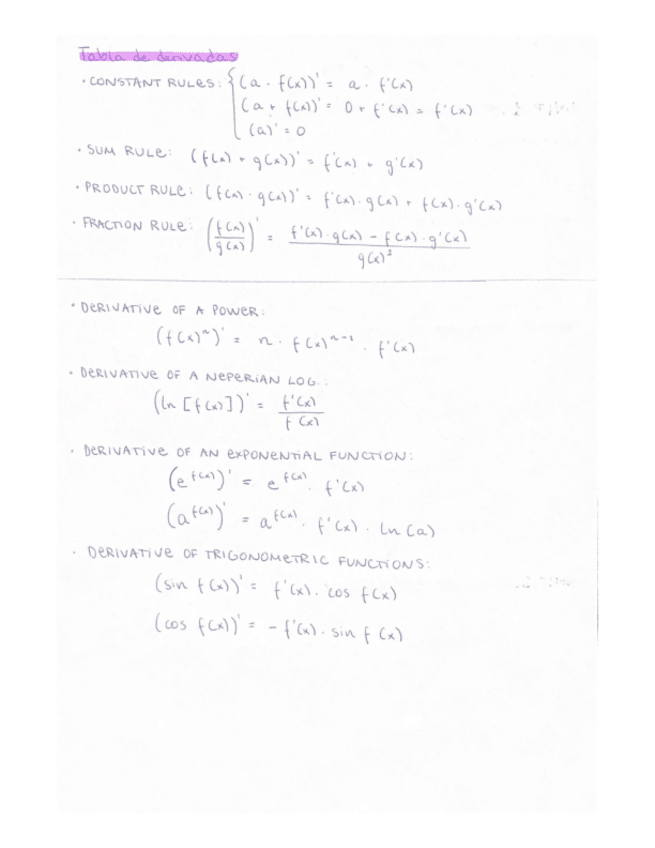 Tabla de derivadas
· CONSTANT RULES: { (a · f(x))' = a · f'(x)
(a + f(x))' = 0 + f'(x) = f'(x)
(a)' = 0
· SUM RULE: (f(x) + g(x))' = f'(x) + g'(x)
· PRODUCT RULE: (f(x) · g(x))' = f'(x) · g(x) + f(x) · g'(x)
· FRACTION RULE: (f(x)/g(x))' = (f'(x) · g(x) - f(x) · g'(x))/g(x)²
· DERIVATIVE OF A POWER:
(f(x)ⁿ)' = n · f(x)ⁿ⁻¹ · f'(x)
· DERIVATIVE OF A NEPERIAN LOG.:
(ln [f(x)])' = f'(x)/f(x)
· DERIVATIVE OF AN EXPONENTIAL FUNCTION:
(e^f(x))' = e^f(x) · f'(x)
(a^f(x))' = a^f(x) · f'(x) · ln(a)
· DERIVATIVE OF TRIGONOMETRIC FUNCTIONS:
(sin f(x))' = f'(x) · cos f(x)
(cos f(x))' = - f'(x) · sin f(x)